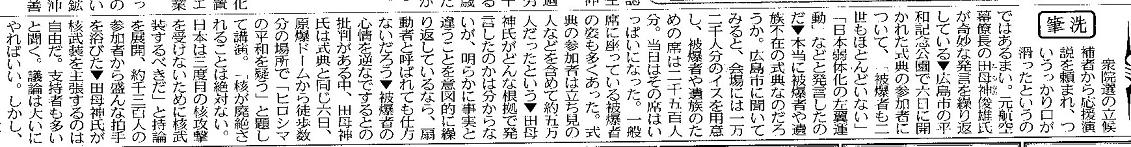 洗筆
衆院選の立候
補者から応援演
説を頼まれ、つ
いうっかり口が
滑ったというの
ではあるまい。元航空
幕僚長の田母神俊雄氏
が奇妙な発言を繰り返
している▼広島市の平
和記念公園で六日に開
かれた式典の参加者に
ついて、「被爆者も二
世もほとんどいない」
「日本弱体化の左翼運
動」などと発言したの
だ▼本当に被爆者や遺
族不在の式典なのだろ
うか。広島市に聞いて
みると、会場には一万
二千人分のイスを用意
し、被爆者と遺族のた
めの席は二千五百人
分。当日はその席はい
っぱいになった。一般
席に座っている被爆者
の姿も多くあった。式
典の参加者は立ち見の
人などを含めて約五万
人だったという▼田母
神氏がどんな根拠で発
言したのかは分からな
いが、明らかに事実と
違うことを意図的に繰
り返しているなら、扇
動者と呼ばれても仕方
ないだろう▼被爆者の
心情を逆なでするとの
批判がある中、田母神
氏は式典と同じ六日、
原爆ドームから徒歩数
分の場所で「ヒロシマ
の平和を疑う」と題し
て講演。「核が廃絶さ
れることは絶対ない。
日本は三度目の核攻撃
を受けないために核武
装するべきだ」と持論
を展開、約千三百人の
参加者から盛んな拍手
を浴びた▼田母神氏が
核武装を主張するのは
自由だ。支持者も多い
と聞く。議論は大いに
やればいい。しかし、